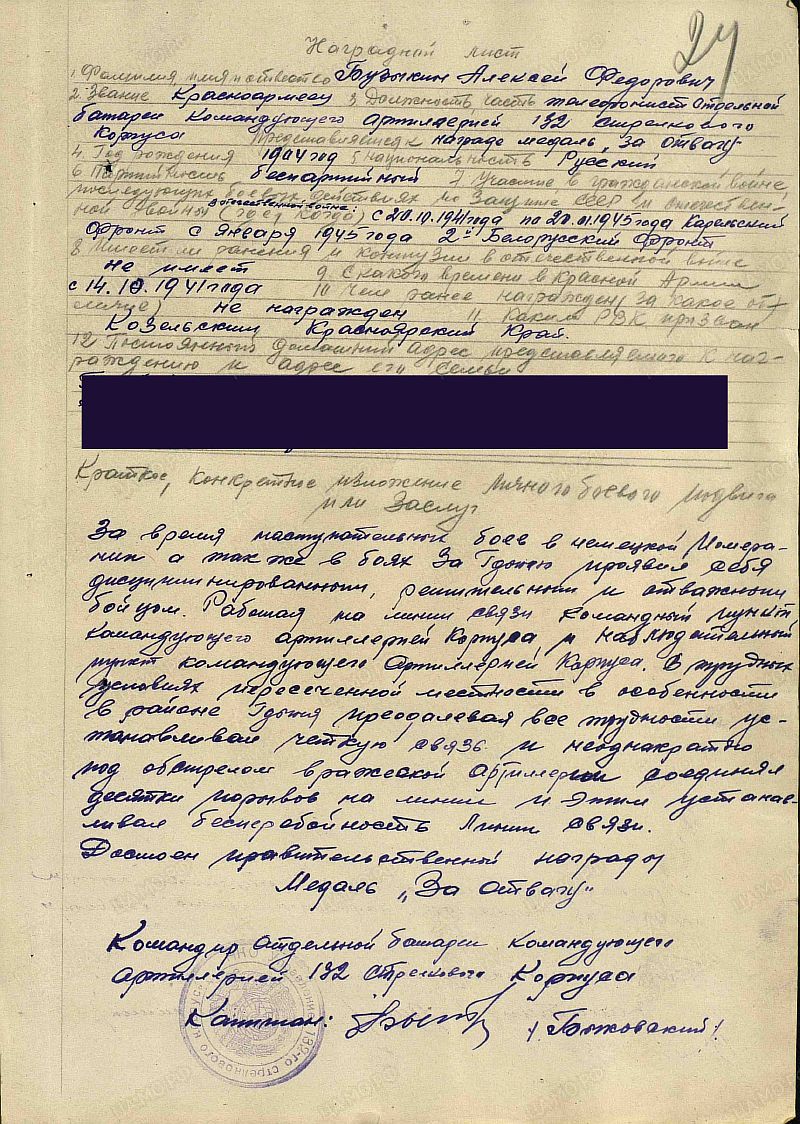 24
Наградной лист
1. Фамилия, имя и отчество Бузыкин Алексей Федорович
2. Звание Красноармеец 3. Должность, часть телефонист Отдельной
батареи Командующего артиллерией 132 Стрелкового
Корпуса Представляется к награде медаль „За отвагу"
4. Год рождения 1904 год 5 Национальность Русский
6. Партийность беспартийный 7. Участие в гражданской войне,
последующих боевых действиях по Защите СССР и отечествен-
ной войны (где, когда) отечественной войне с 20.10.1941 года по 20.01.1945 года Карельский
фронт с января 1945 года 2й Белорусский Фронт
8. Имеет ли ранения и контузии в отечественной войне
не имеет 9. С какого времени в Красной Армии
с 14.10.1941 года 10 Чем ранее награжден, за какое от-
личие, не награжден 11. Каким РВК призван
Козельским Красноярский Край.
12 Постоянный домашний адрес представляемого к наг-
раждению и адрес его семьи
Краткое, конкретное изложение личного боевого подвига
или Заслуг
За время наступательных боев в немецкой Помера-
нии а так же в боях За Гдыню проявил себя
дисциплинированным, решительным и отважным
бойцом. Работая на линии связи Командный пункт
Командующего артиллерией Корпуса и наблюдательный
пункт командующего Артиллерией Корпуса. В трудных
условиях пересеченной местности в особенности
в районе Гдыня преодалевая все трудности ус-
танавливал четкую связь и неоднакратно
под обстрелом вражеской Артиллерии соединял
десятки порывов на линии и этим устанав-
ливал бесперебойность Линии связи.
Достоен правительственной награды
Медаль „За Отвагу"
Командир отдельной батареи Командующего
артиллерией 132 стрелкового Корпуса
Капитан: /Быховский/
132-го стрелкового